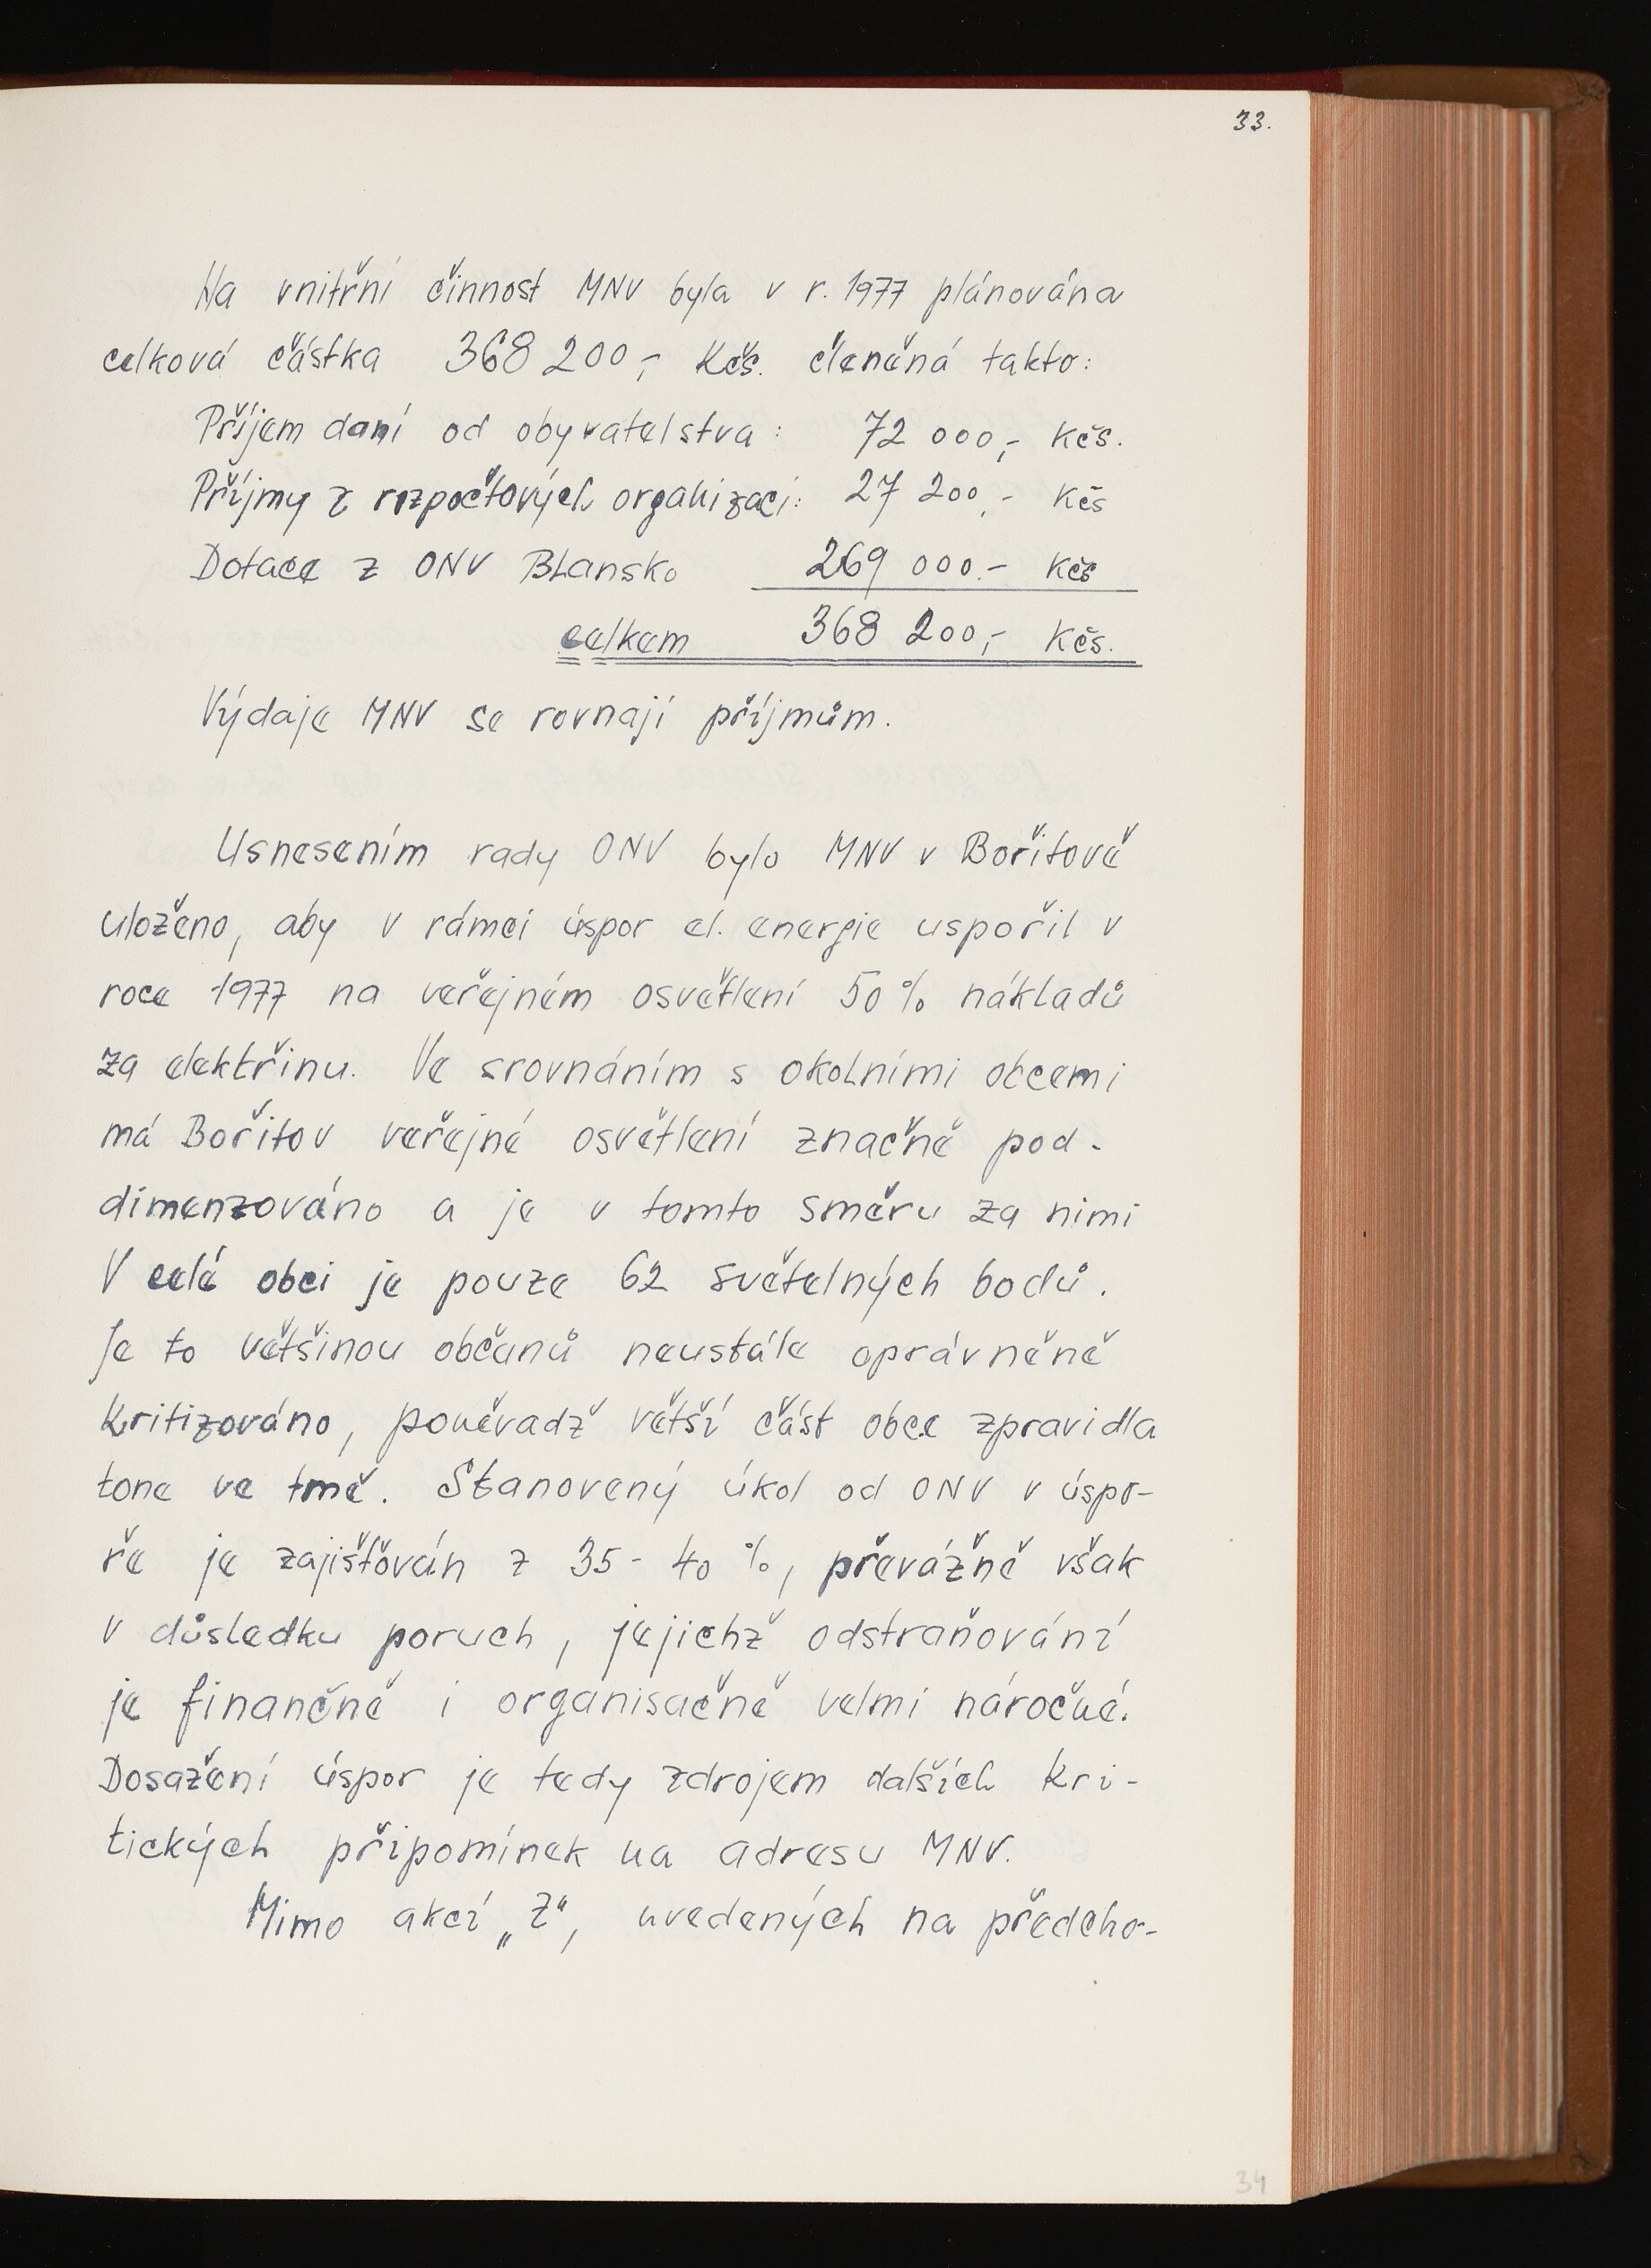 33.
Na vnitřní činnost MNV byla v r. 1977 plánována
celková částka 368 200,- Kčs. členěná takto:
Příjem daní od obyvatelstva: 72 000,- Kčs.
Příjmy z rozpočtových organizací: 27 200,- Kčs
Dotace z ONV Blansko 269 000.- Kčs
celkem 368 200,- Kčs.
Výdaje MNV se rovnají příjmům.
Usnesením rady ONV bylo MNV v Bořitově
uloženo, aby v rámci úspor el. energie uspořil v
roce 1977 na veřejném osvětlení 50% nákladů
za elektřinu. Ve srovnáním s okolními obcemi
má Bořitov veřejné osvětlení značně pod-
dimenzováno a je v tomto směru za nimi
V celé obci je pouze 62 světelných bodů.
Je to většinou občanů neustále oprávněně
kritizováno, poněvadž větší část obce zpravidla
tone ve tmě. Stanovený úkol od ONV v úspo-
ře je zajišťován z 35 - 40 %, převážně však
v důsledku poruch, jejichž odstraňování
je finančně i organisačně velmi náročné.
Dosažení úspor je tedy zdrojem dalších kri-
tických připomínek na adresu MNV.
Mimo akcí „Z", uvedených na předcho-
34